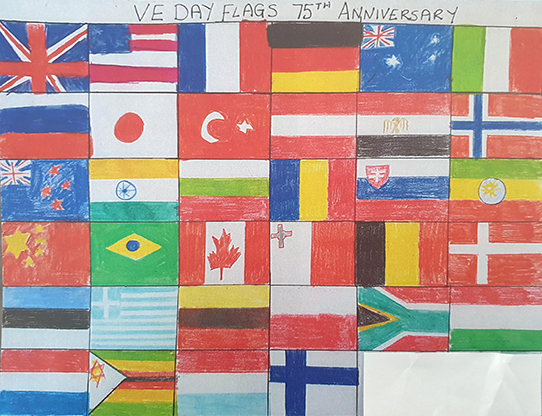 VE DAY FLAGS 75TH ANNIVERSARY